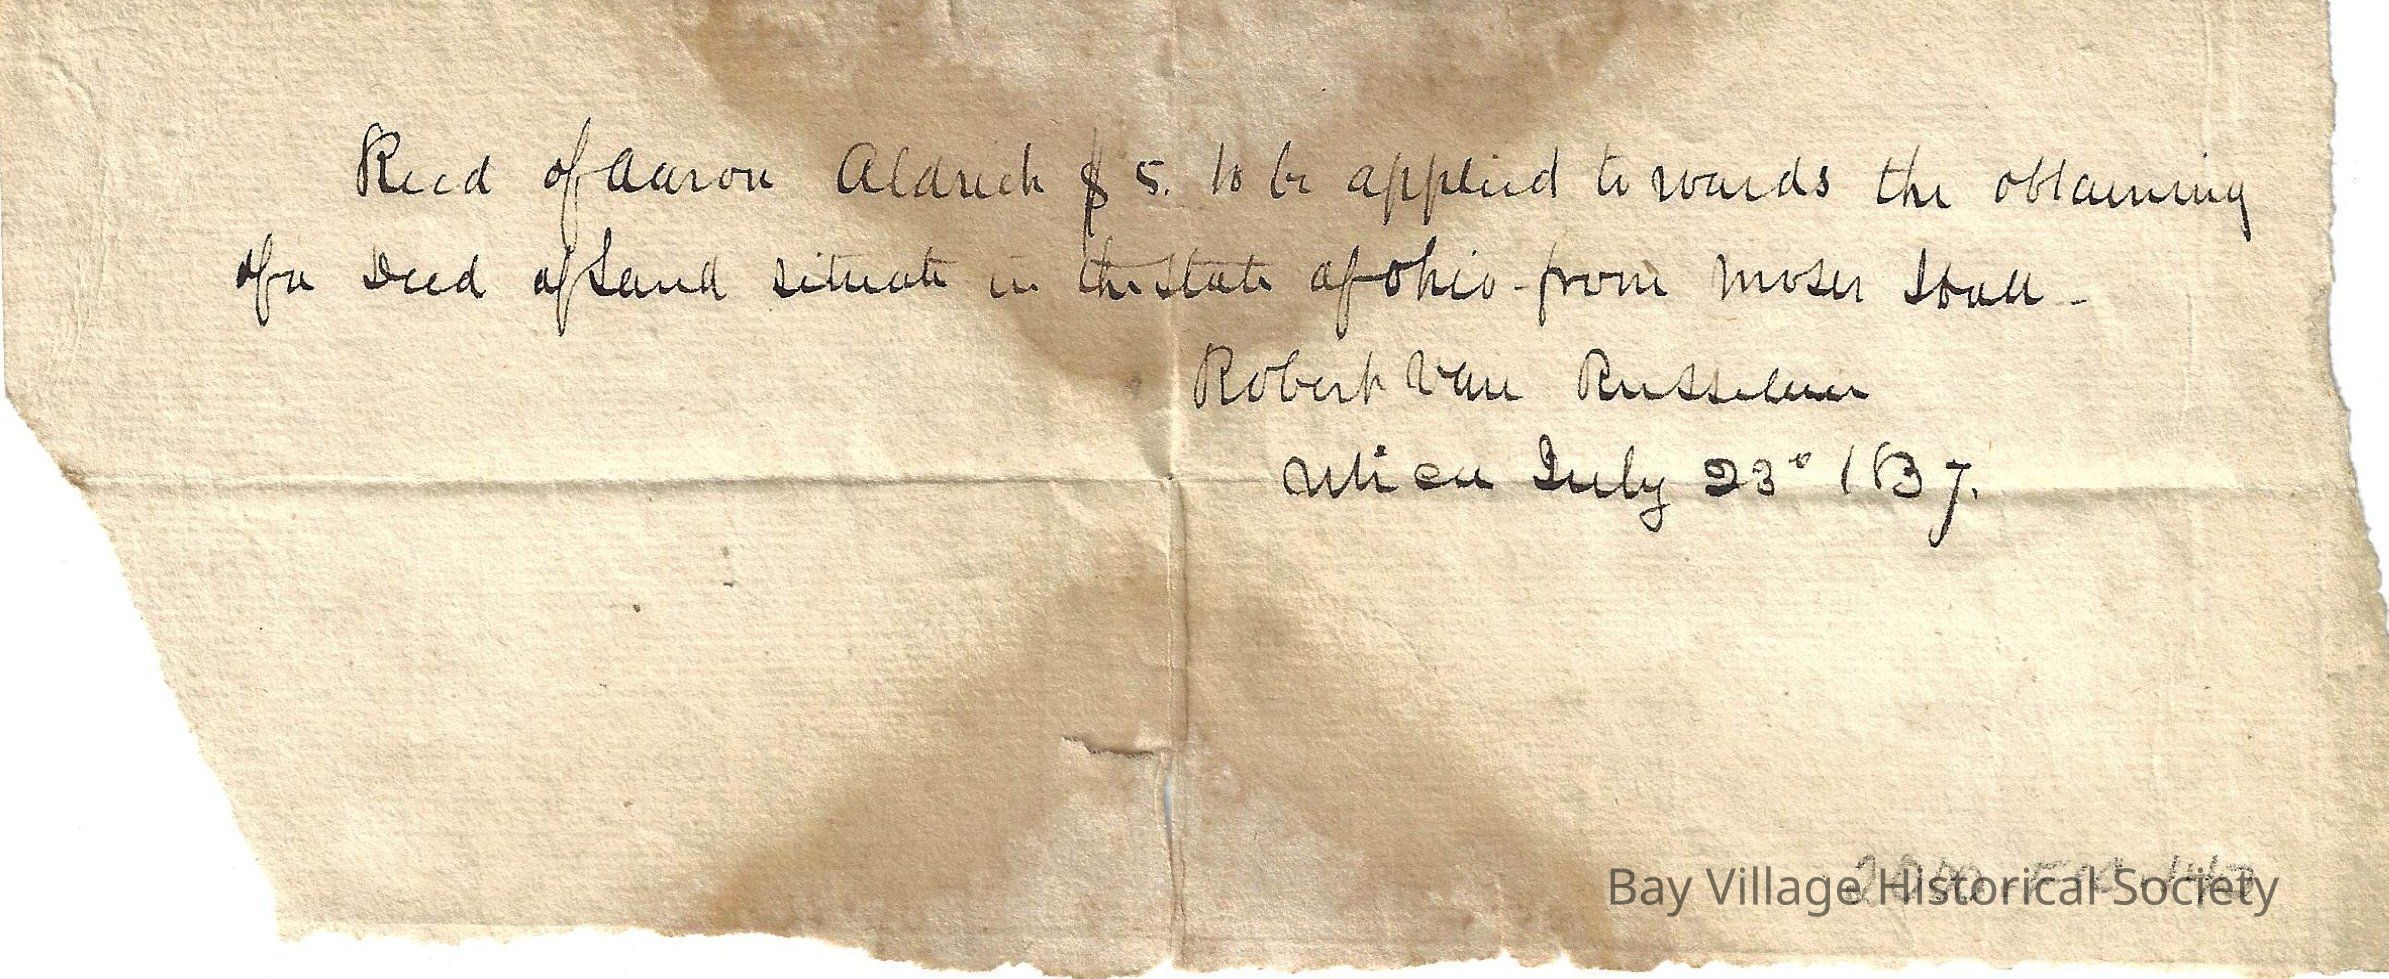 Recd of Aaron Aldrich $5. to be applied towards the obtaining
of a Deed of Land situate in the State of Ohio - from Moses Hall -
Robert Van Russelaer
Utica July 23° 1837.
Bay Village Historical Society